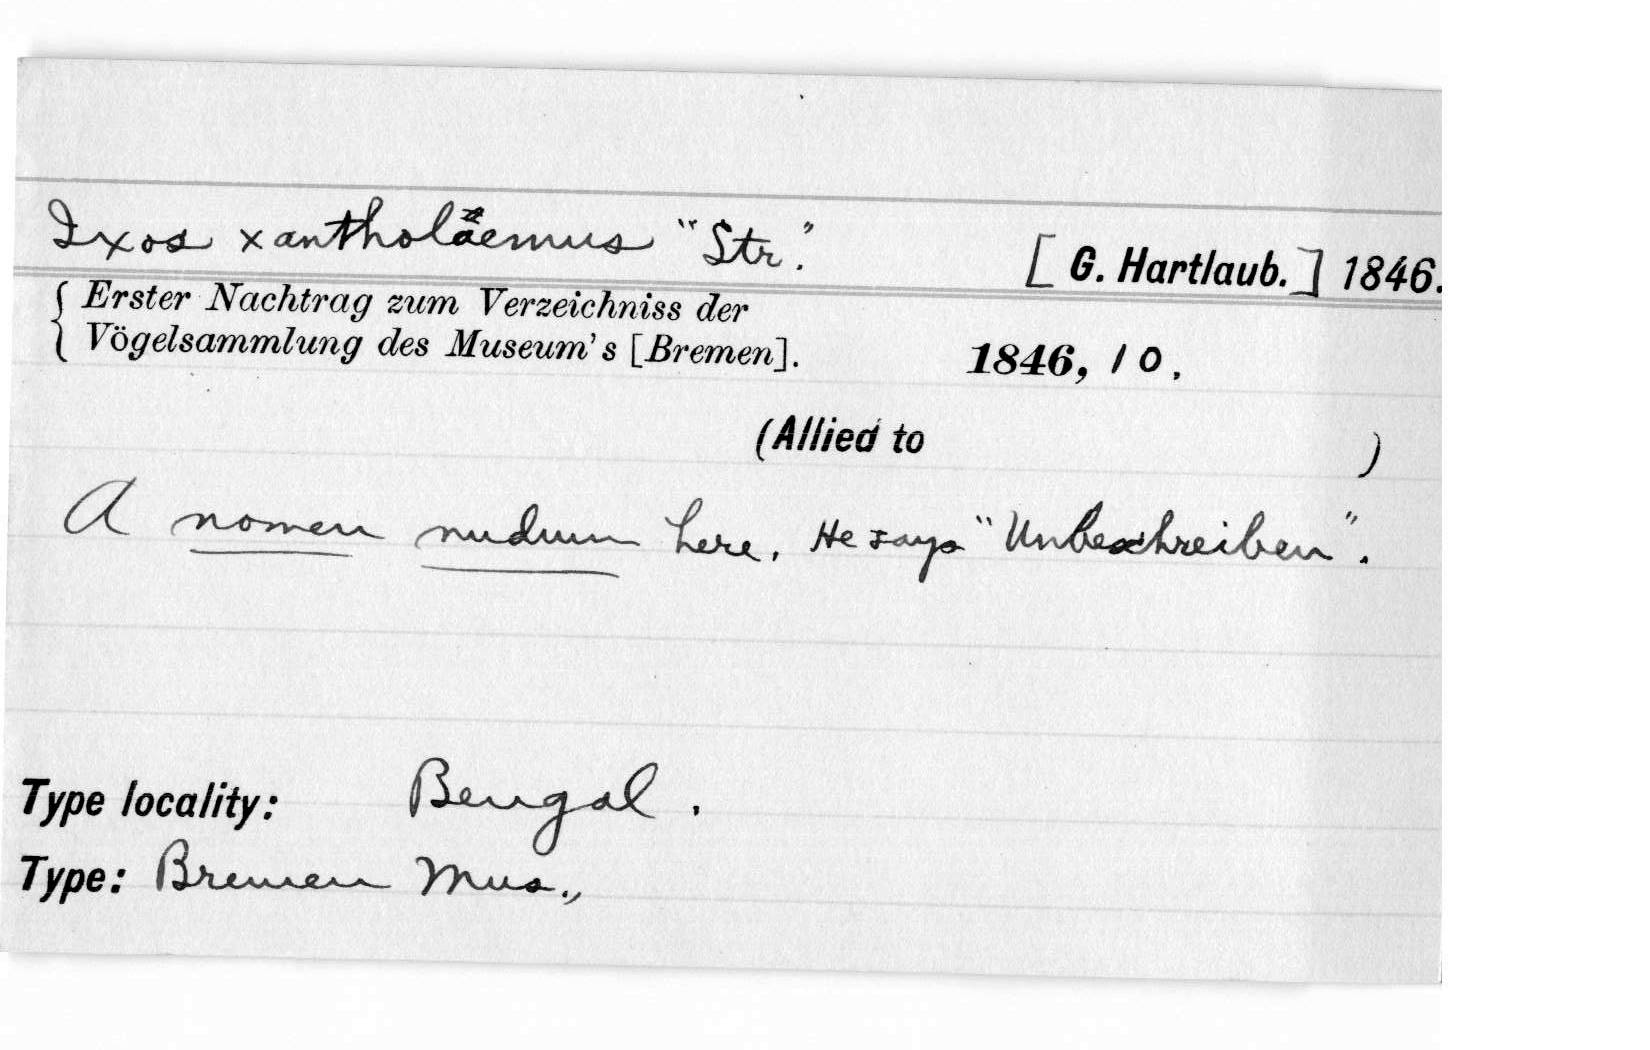 Ixos xantholaemus "Str."
[G. Hartlaub.] 1846.
{ Erster Nachtrag zum Verzeichniss der
Vögelsammlung des Museum's [Bremen]. 1846, 10.
(Allied to )
A nomen nudum here. He says "Unbeschreiben".
Type locality: Bengal.
Type: Bremen Mus.,